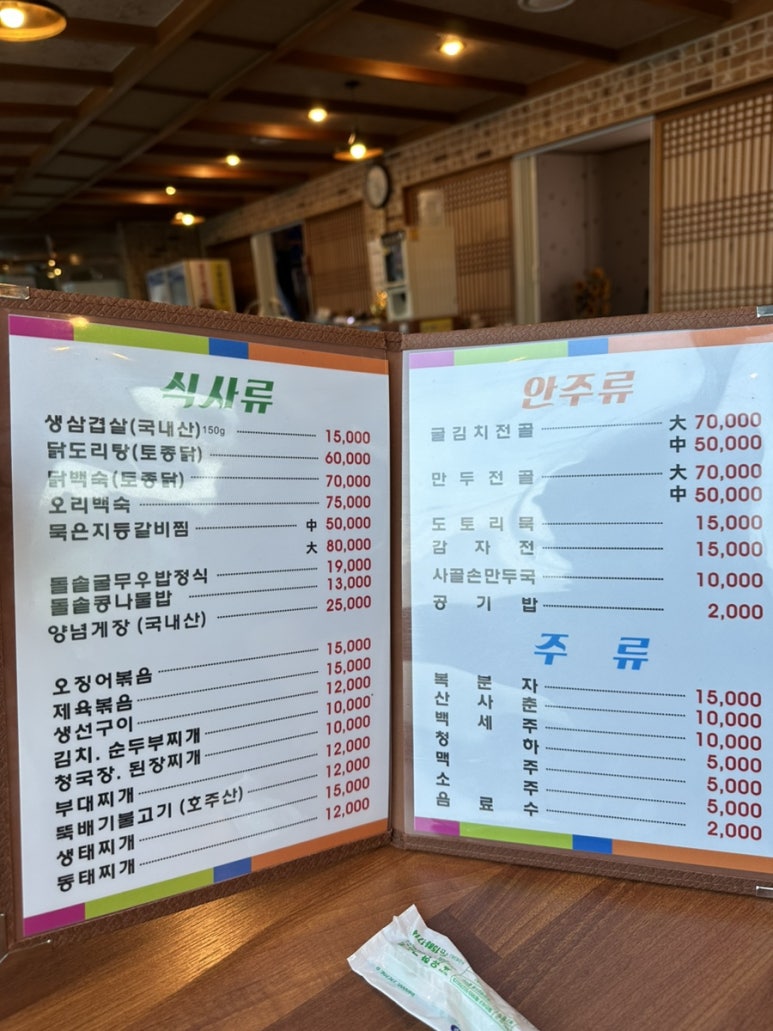 식사류
생삼겹살(국내산)150g 15,000
닭도리탕(토종닭) 60,000
닭백숙(토종닭) 70,000
오리백숙 75,000
묵은지등갈비찜 中 50,000
大 80,000
돌솥굴무우밥정식 19,000
돌솥콩나물밥 13,000
양념게장 (국내산) 25,000
오징어볶음 15,000
제육볶음 15,000
생선구이 12,000
김치. 순두부찌개 10,000
청국장. 된장찌개 10,000
부대찌개 12,000
뚝배기불고기 (호주산) 12,000
생태찌개 15,000
동태찌개 12,000
안주류
굴김치전골 大 70,000
中 50,000
만두전골 大 70,000
中 50,000
도토리묵 15,000
감자전 15,000
사골손만두국 10,000
공기밥 2,000
주류
복분자 15,000
산사춘 10,000
백세주 10,000
청하 5,000
맥주 5,000
소주 5,000
음료수 2,000